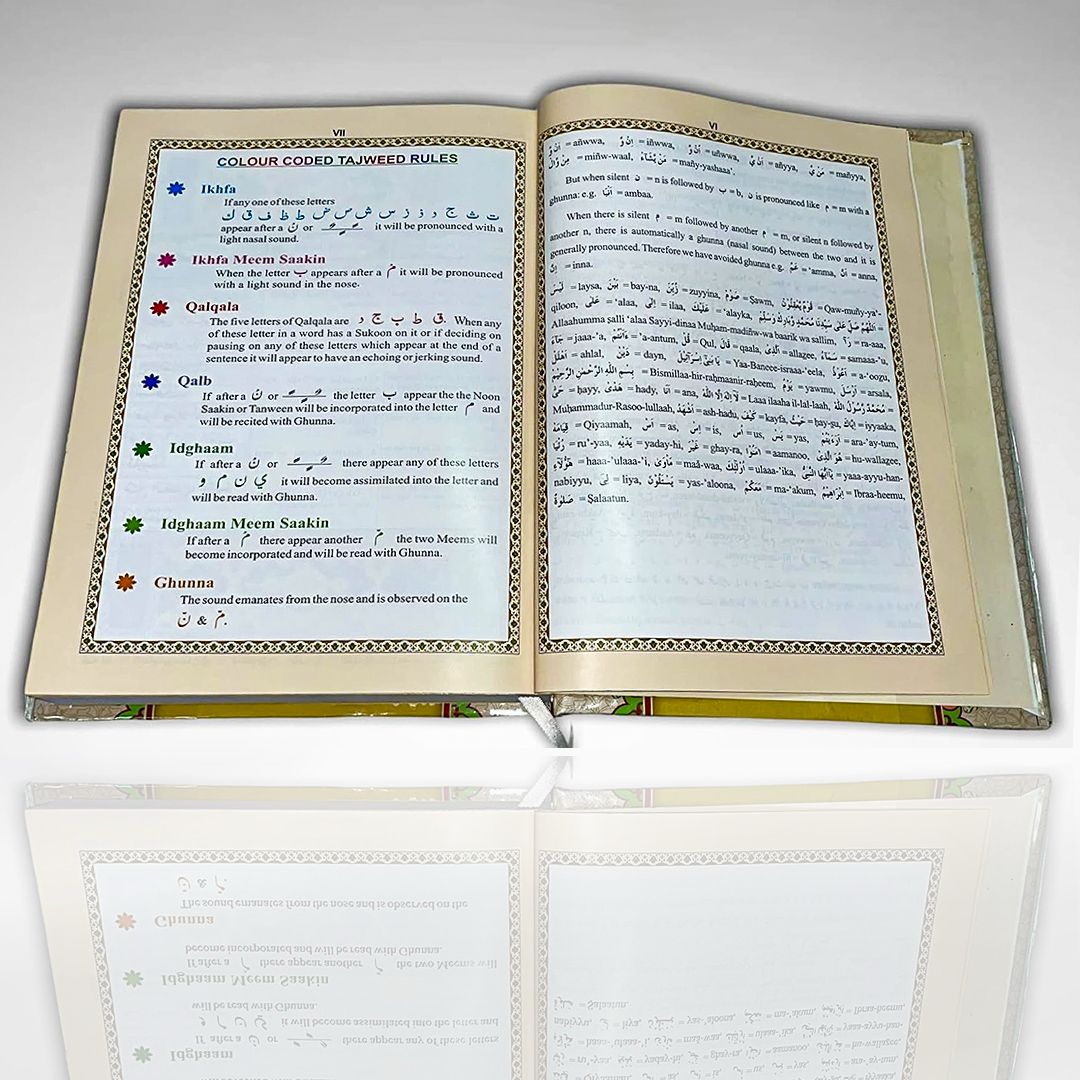 VI
اَنْ وَّ = añwwa, اِنْ وَّ = iñwwa, اُنْ وَّ = uñwwa, اَنْ يَّ = añyya, مَنْ يَّ = mañyya,
مِنْ وَّالٍ = miñw-waal, مَنْ يَّشَآءُ = mañy-yashaaa'.
But when silent ن = n is followed by ب = b, ن is pronounced like م = m with a
ghunna: e.g. اَنْۢبَا = ambaa.
When there is silent م = m followed by another م = m, or silent n followed by
another n, there is automatically a ghunna (nasal sound) between the two and it is
generally pronounced. Therefore we have avoided ghunna e.g. عَمَّ = 'amma, اَنَّ = anna,
اِنَّ = inna.
لَيْسَ = laysa, بَيْنَ = bay-na, زُيِّنَ = zuyyina, صَوْمٌ = Ṣawm, قَوْمٌ يَّعْقِلُوْنَ = Qaw-muñy-ya'-
qiloon, عَلٰى = 'alaa, اِلٰى = ilaa, عَلَيْكَ = 'alayka, اَللّٰهُمَّ صَلِّ عَلٰى سَيِّدِنَا مُحَمَّدٍ وَّبَارِكْ وَسَلِّمْ =
Allaahumma ṣalli 'alaa Sayyi-dinaa Muḥam-madiñw-wa baarik wa sallim, رَآ = ra-aaa,
جَآءَ = jaaa-'a, ءَاَنْتُمْ = 'a-antum, قُلْ = Qul, قَالَ = qaala, اَلَّذِىْ = allaẓee, سَمَآءُ = samaaa-'u,
اَهْلَلَ = ahlal, دَيْنٍ = dayn, يَا بَنِىْٓ اِسْرَآءِيْلَ = Yaa-Baneee-israaa-'eela, اَعُوْذُ = a-'ooẓu,
بِسْمِ اللّٰهِ الرَّحْمٰنِ الرَّحِيْمِ = Bismillaa-hir-raḥmaanir-raḥeem, يَوْمُ = yawmu, اَرْسَلَ = arsala,
حَىٌّ = ḥayy, هَدْىٌ = hady, اَنَا = ana, لَآ اِلٰهَ اِلَّا اللّٰهُ = Laaa ilaaha il-lal-laah, مُحَمَّدٌ رَّسُوْلُ اللّٰهِ =
Muḥammadur-Rasoo-lullaah, اَشْهَدُ = ash-hadu, كَيْفَ = kayfa, حَيْثُ = ḥay-s̱u, اِيَّاكَ = iyyaaka,
قِيَامَة = Qiyaamah, اَسْ = as, اِسْ = is, اُسْ = us, يَسْ = yas, اَرَءَيْتُمْ = ara-'ay-tum,
رُءْيَا = ru'-yaa, يَدَيْهِ = yaday-hi, غَيْرَ = ghay-ra, اٰمَنُوْا = aamanoo, هُوَ الَّذِىْ = hu-wallaẓee,
هٰٓؤُلَآءِ = haaa-'ulaaa-'i, مَاْوٰى = maâ-waa, اُولٰٓئِكَ = ulaaa-'ika, يٰٓاَيُّهَا النَّبِىُّ = yaaa-ayyu-han-
nabiyyu, لِىَ = liya, يَسْئَلُوْنَ = yas-'aloona, مَعَكُمْ = ma-'akum, اِبْرَاهِيْمُ = Ibraa-heemu,
صَلٰوةٌ = Ṣalaatun.
VII
COLOUR CODED TAJWEED RULES
Ikhfa
If any one of these letters
ت ث ج د ذ ز س ش ص ض ط ظ ف ق ك
appear after a نْ or ـًـٍـٌ it will be pronounced with a
light nasal sound.
Ikhfa Meem Saakin
When the letter ب appears after a مْ it will be pronounced
with a light sound in the nose.
Qalqala
The five letters of Qalqala are ق ط ب ج د. When any
of these letter in a word has a Sukoon on it or if deciding on
pausing on any of these letters which appear at the end of a
sentence it will appear to have an echoing or jerking sound.
Qalb
If after a نْ or ـًـٍـٌ the letter ب appear the the Noon
Saakin or Tanween will be incorporated into the letter م and
will be recited with Ghunna.
Idghaam
If after a نْ or ـًـٍـٌ there appear any of these letters
ي ن م و it will become assimilated into the letter and
will be read with Ghunna.
Idghaam Meem Saakin
If after a مْ there appear another مّ the two Meems will
become incorporated and will be read with Ghunna.
Ghunna
The sound emanates from the nose and is observed on the
نّ & مّ.